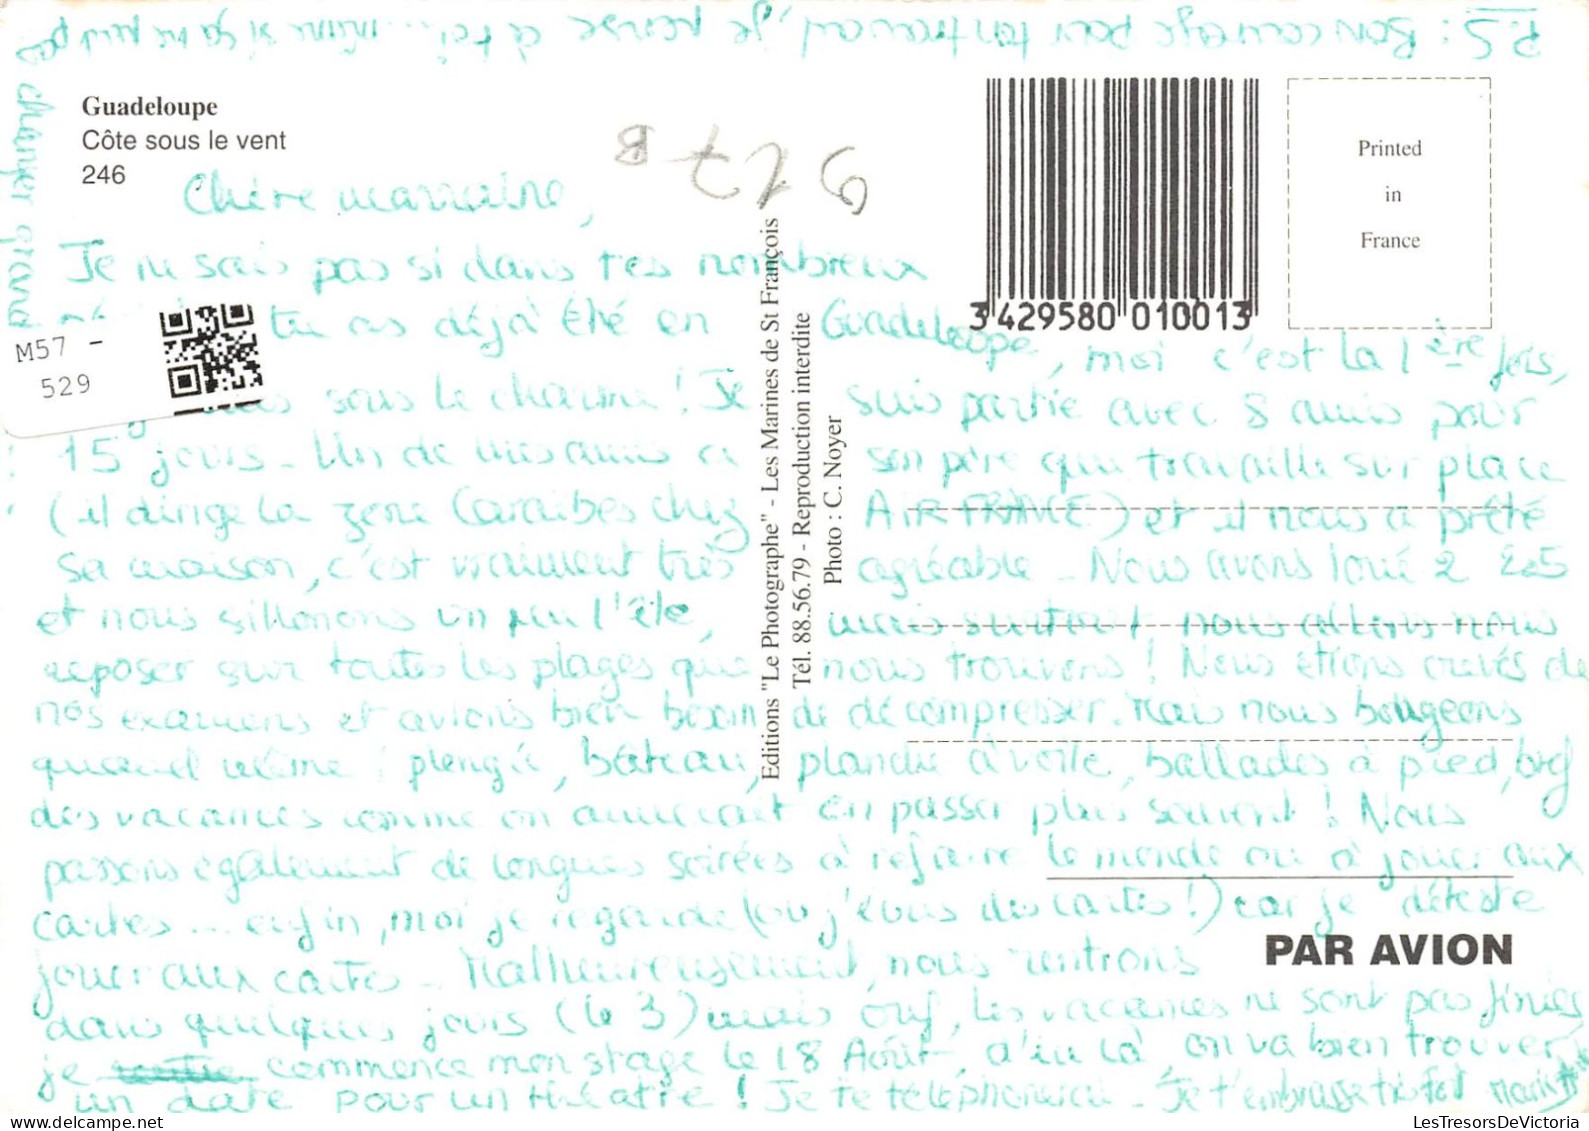 P.S : Bon courage pour ton travail, je pense à toi... même si ça ne peut pas
changer grand
Guadeloupe
Côte sous le vent
246
917 B
Printed
in
France
3 429580 010013
M57 -
529
Editions "Le Photographe" - Les Marines de St François
Tél. 88.56.79 - Reproduction interdite
Photo : C. Noyer
Chère marraine,
Je ne sais pas si dans tes nombreux
tu as déjà été en Guadeloupe, moi c'est la 1ère fois,
sous le charme ! Je suis partie avec 8 amis pour
15 jours. Un de mes amis a son père qui travaille sur place
(il dirige la zone Caraïbes chez AIR FRANCE) et il nous a prêté
sa maison, c'est vraiment très agréable. Nous avons loué 2 205
et nous sillonons un peu l'île, mais surtout, nous allons nous
reposer sur toutes les plages que nous trouvons ! Nous étions crevés de
nos examens et avions bien besoin de décompresser. Mais nous bougeons
quand même : plongée, bateau, planche à voile, ballades à pied, bref
des vacances comme on aimerait en passer plus souvent ! Nous
passons également de longues soirées à refaire le monde ou à jouer aux
cartes... enfin, moi je regarde (ou j'écris des cartes !) car je déteste
jouer aux cartes. Malheureusement, nous rentrons
PAR AVION
dans quelques jours (le 3) mais ouf, les vacances ne sont pas finies
je commence mon stage le 18 Août, d'ici là, on va bien trouver
un date pour un théatre ! Je te téléphonerai. Je t'embrasse très fort
LesTresorsDeVictoria.com